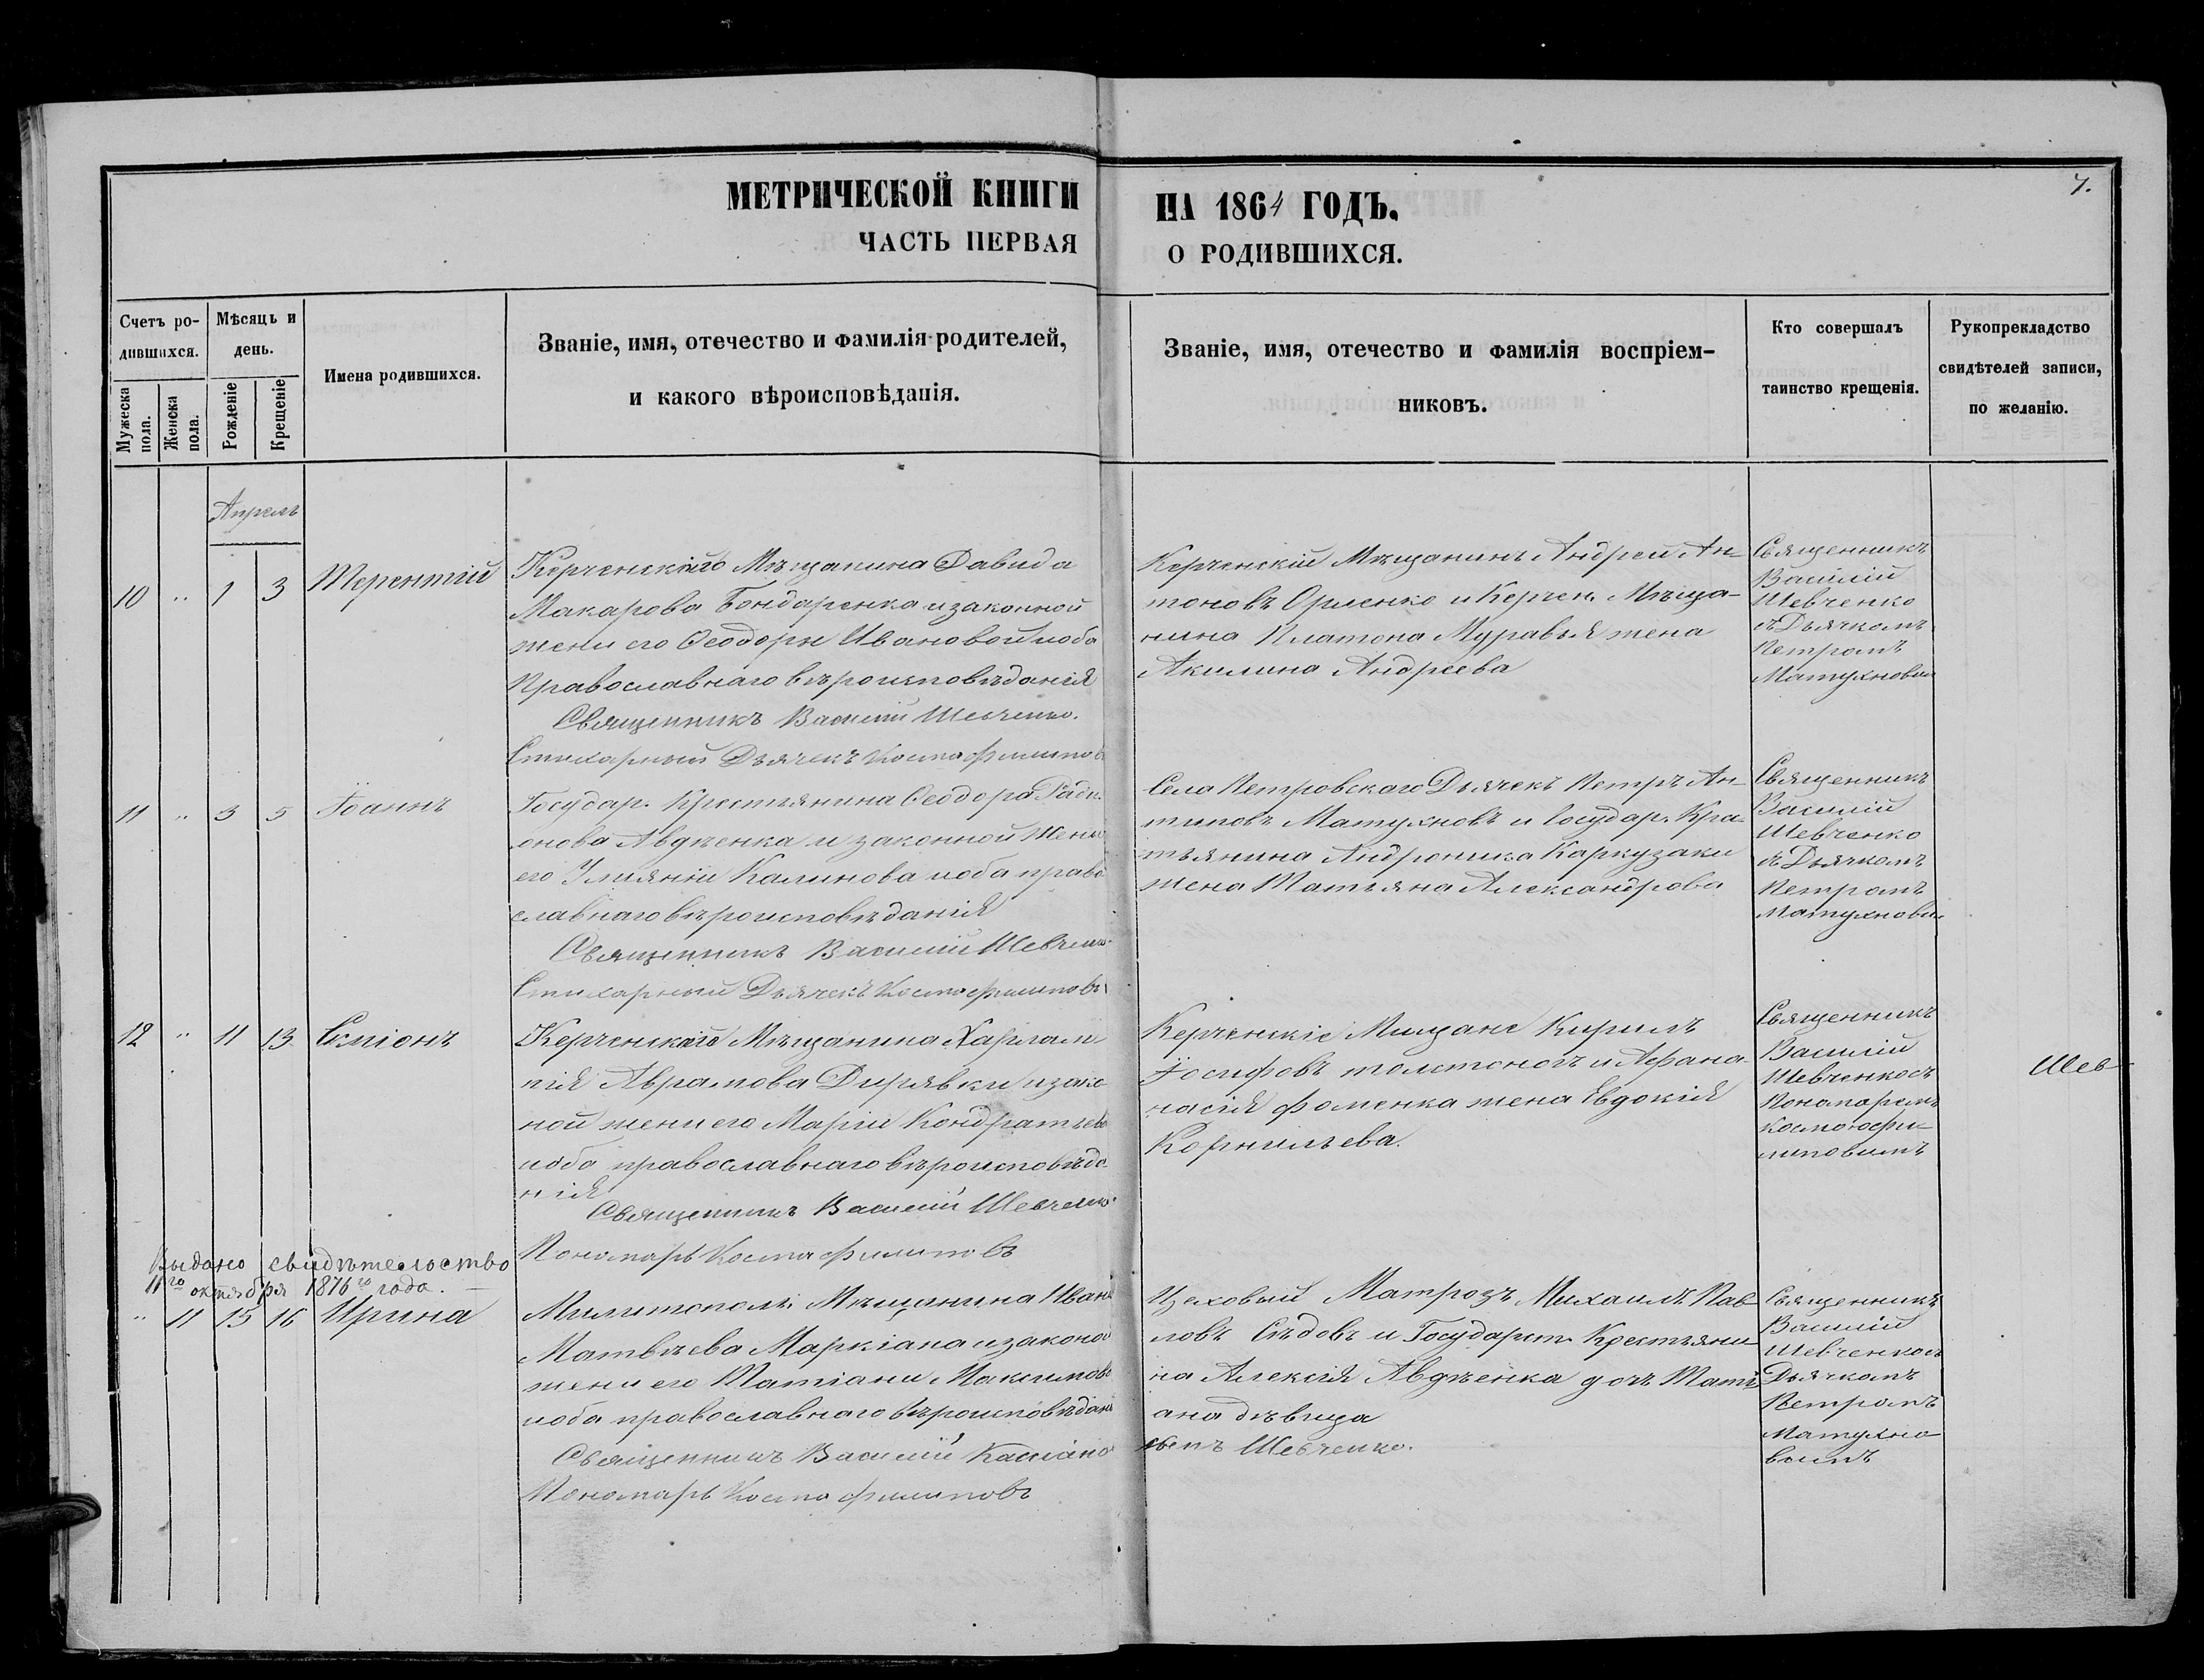 МЕТРИЧЕСКОЙ КНИГИ НА 1864 ГОДЪ.
7.
ЧАСТЬ ПЕРВАЯ О РОДИВШИХСЯ.
Счетъ ро-
дившихся.
Мужеска пола.
Женска пола.
Мѣсяцъ и
день.
Рожденіе
Крещеніе
Имена родившихся.
Званіе, имя, отечество и фамилія родителей,
и какого вѣроисповѣданія.
Званіе, имя, отечество и фамилія воспріем-
никовъ.
Кто совершалъ
таинство крещенія.
Рукоприкладство
свидѣтелей записи,
по желанію.
Апрель
10 " 1 3 Терентій
Керченскаго Мѣщанина Давида
Макарова Бондаренка и законной
жены его Ѳеодоры Ивановой иоба
Православнаго вѣроисповѣданія
Священникъ Василій Шевченко.
Стихарный Дьячекъ Косма Филиповъ
Керченскій Мѣщанинъ Андрей Ан-
тоновъ Орленко и Керчен. Мѣща-
нина Платона Муравья жена
Акилина Андреева
Священникъ
Василій
Шевченко
съ Дьячкомъ
Петромъ
Матухновым
11 " 3 5 Іоаннъ
Государ. Крестьянина Ѳеодора Ради-
онова Авдѣенка и законной Жены
его Улияніи Калинова иоба право
славнаго вѣроисповѣданія
Священникъ Василій Шевченко
Стихарный Дьячекъ Косма Филиповъ
Села Петровскаго Дьячекъ Петръ Ан-
типовъ Матухновъ и Государ. Кре-
стьянина Андроника Каркузаки
жена Татьяна Александрова
Священникъ
Василій
Шевченко
съ Дьячкомъ
Петромъ
Матухновы
12 " 11 13 Симіонъ
Керченскаго Мѣщанина Харлам
пія Аврамова Дирявки и зако
ной жены его Маріи Кондратьев
иоба православнаго вѣроисповѣда
нія
Священникъ Василій Шевченко
Пономарь Косма Филиповъ
Керченскіе Мищане Кирилъ
Іосифовъ толстоногъ и Афана-
насія Фоменка жена Евдокія
Корнильева.
Священникъ
Василій
Шевченко съ
Пономаремъ
Космою Фи-
липовымъ
Шев
Выдано свидѣтельство
11го октября 1876го года.
" 11 15 16 Ирина
Милитополь. Мѣщанина Иван
Матвѣева Маркіана и законо
жены его Татіаны Максимов
иоба православнаго вѣроисповѣдані
Священникъ Василій Касіано
Пономарь Косма Филиповъ
Цеховый Матрозъ Михаилъ Пав-
ловъ Сѣдовъ и Государст. Крестьяни-
на Алексія Авдѣенка дочь Тать
ана дѣвица
вичъ Шевченко.
Священникъ
Василій
Шевченко съ
Дьячкомъ
Петромъ
Матухно
вымъ